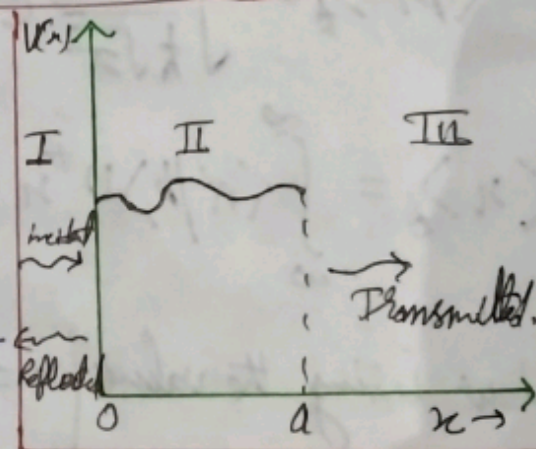 V(x)
I II III
incident
Transmitted.
Reflected
0 a x →